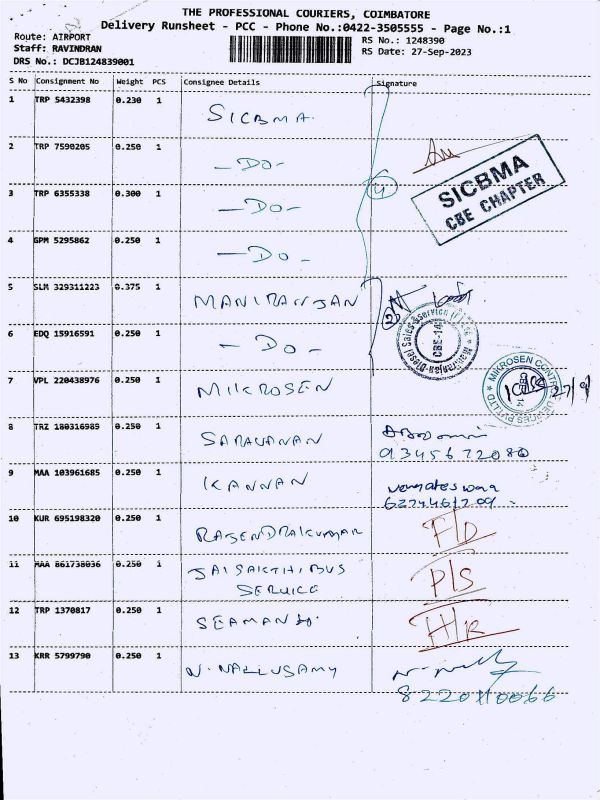 THE PROFESSIONAL COURIERS, COIMBATORE
Delivery Runsheet - PCC - Phone No.:0422-3505555 - Page No.:1
Route: AIRPORT
RS No.: 1248390
Staff: RAVINDRAN
RS Date: 27-Sep-2023
DRS No.: DCJB124839001
S No Consignment No Weight PCS Consignee Details Signature
1 TRP 5432398 0.230 1 SICBMA.
2 TRP 7590205 0.250 1 -DO-
SICBMA
CBE CHAPTER
3 TRP 6355338 0.300 1 -DO-
4
4 GPM 5295862 0.250 1 -DO-
5 SLM 329311223 0.375 1 MANIRANJAN
2
CBE-14
6 EDQ 15916591 0.250 1 -DO-
7 VPL 220438976 0.250 1 MIKROSEN
MIKROSEN 14 27/9
8 TRZ 180316985 0.250 1 SARAVANAN
9345672080
9 MAA 103961685 0.250 1 KANNAN
10 KUR 695198320 0.250 1 RAJENDRAKUMAR F/D
11 MAA 861738036 0.250 1 JAI SAKTHI BUS
SERVICE
P/S
12 TRP 1370817 0.250 1 H/R
13 KRR 5799790 0.250 1 N. NALLUSAMY